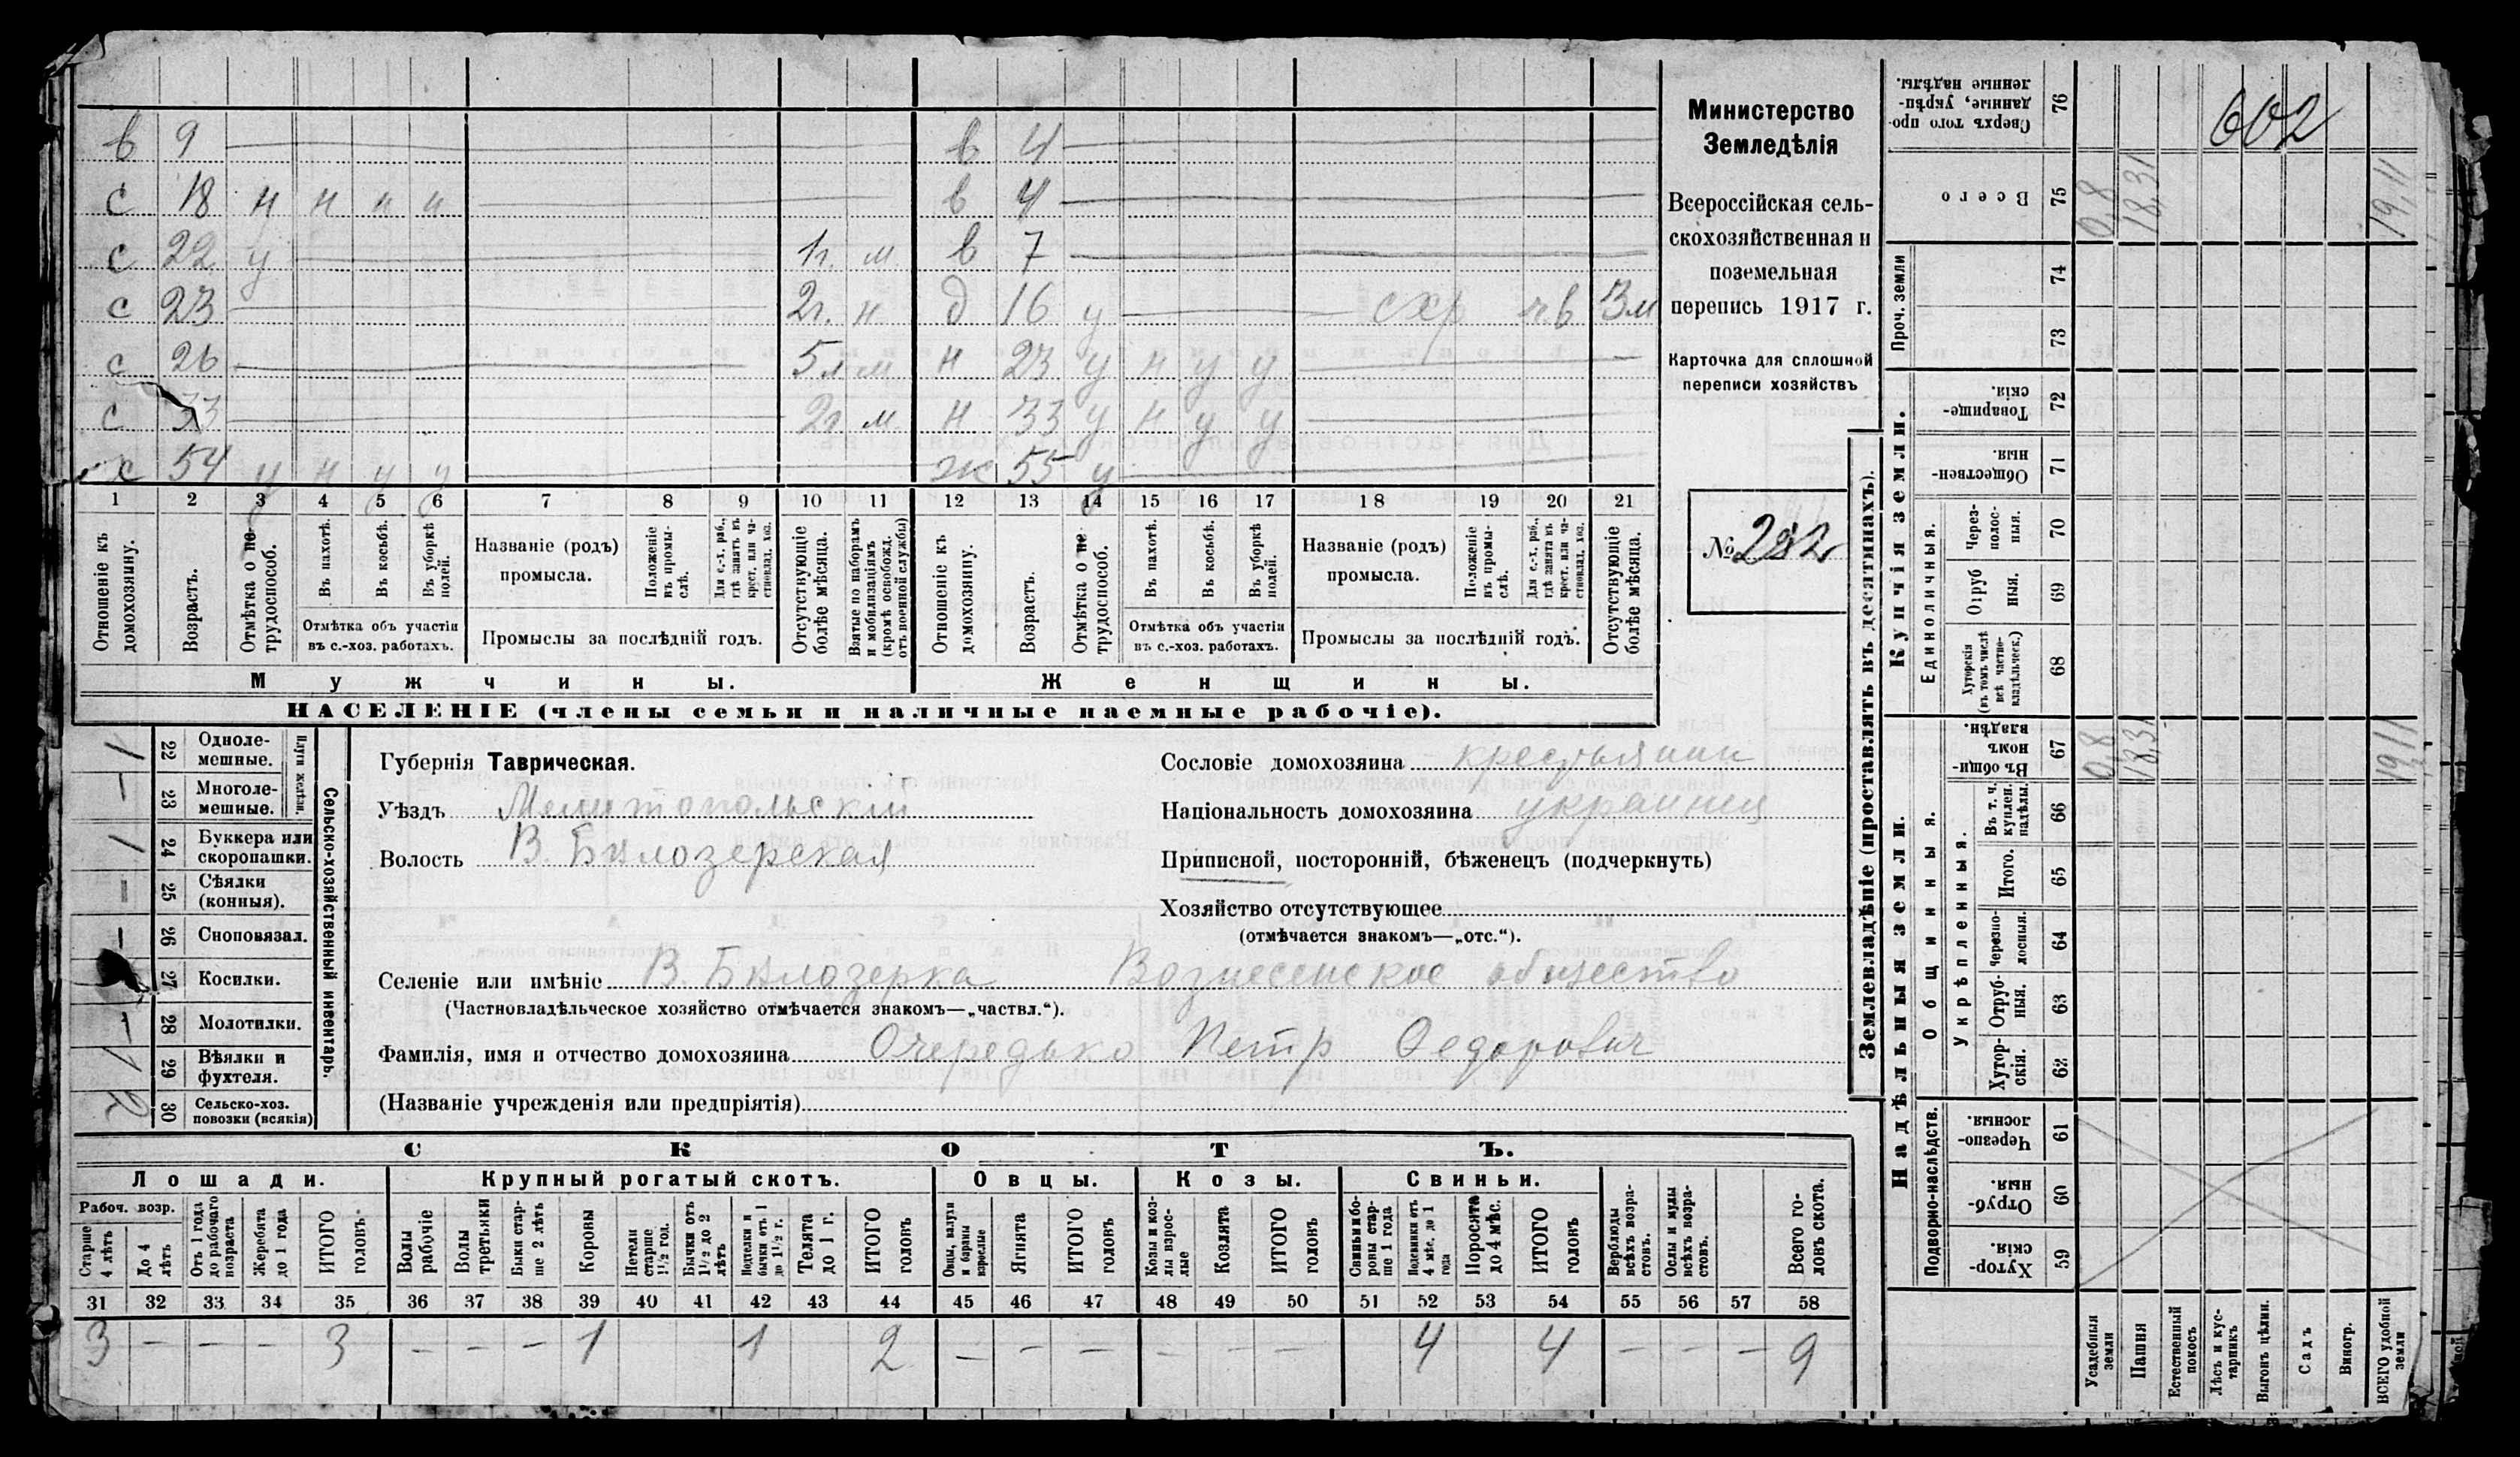 в 9 — в 4 —
с 18 н н н н — в 4 —
с 22 у — 1г. м. в 7 —
с 23 — 2г. н д 16 у — схр ч.в 3м
с 26 — 5л м н 23 у н у у —
с 33 — 2г м. н 33 у н у у —
х 54 у н у у — ж 55 у —
1 2 3 4 5 6 7 8 9 10 11 12 13 14 15 16 17 18 19 20 21
Отношеніе къ домохозяину.
Возрастъ.
Отмѣтка о не-трудоспособ.
Въ пахотѣ.
Въ косьбѣ.
Въ уборкѣ полей.
Названіе (родъ) промысла.
Положеніе въ промы-слѣ.
Для с.-х. раб., гдѣ занятъ въ крест. или ча-стновлад. хоз.
Отсутствующіе болѣе мѣсяца.
Взятые по наборамъ и мобилизаціямъ (кромѣ освобожд. отъ военной службы)
Отношеніе къ домохозяину.
Возрастъ.
Отмѣтка о не-трудоспособ.
Въ пахотѣ.
Въ косьбѣ.
Въ уборкѣ полей.
Названіе (родъ) промысла.
Положеніе въ промы-слѣ.
Для с.-х. раб., гдѣ занята въ крест. или ча-стновлад. хоз.
Отсутствующіе болѣе мѣсяца.
Отмѣтка объ участіи въ с.-хоз. работахъ.
Промыслы за послѣдній годъ.
Отмѣтка объ участіи въ с.-хоз. работахъ.
Промыслы за послѣдній годъ.
Мужчины.
Женщины.
НАСЕЛЕНІЕ (члены семьи и наличные наемные рабочіе).
Министерство
Земледѣлія
Всероссійская сель-
скохозяйственная и
поземельная
перепись 1917 г.
Карточка для сплошной
переписи хозяйствъ
№ 282
Сельско-хозяйственный инвентарь.
Плуги желѣзн.
22 Одноле-мешные. 1
23 Многоле-мешные. —
24 Буккера или скоропашки. 1
25 Сѣялки (конныя). —
26 Сноповязал. —
27 Косилки.
28 Молотилки. —
29 Вѣялки и фухтеля. 1
30 Сельско-хоз. повозки (всякія) 2
Губернія Таврическая.
Уѣздъ Мелитопольскій
Волость В. Бѣлозерская
Сословіе домохозяина крестьянин
Національность домохозяина украинец
Приписной, посторонній, бѣженецъ (подчеркнуть)
Хозяйство отсутствующее
(отмѣчается знакомъ—„отс.“).
Селеніе или имѣніе В. Бѣлозерка Вознесенское общество
(Частновладѣльческое хозяйство отмѣчается знакомъ—„частвл.“).
Фамилія, имя и отчество домохозяина Очередько Петр Федорович
(Названіе учрежденія или предпріятія)
СКОТЪ.
Лошади. Крупный рогатый скотъ. Овцы. Козы. Свиньи.
Рабоч. возр.
Старше 4 лѣтъ
До 4 лѣтъ
Отъ 1 года до рабочаго возраста
Жеребята до 1 года
ИТОГО головъ.
Волы рабочіе
Волы третьяки
Быки стар-ше 2 лѣтъ
Коровы
Нетели старше 1½ год.
Бычки отъ 1½ до 2 лѣтъ
Подтелки и бычки отъ 1 до 1½ г.
Телята до 1 г.
ИТОГО головъ
Овцы, валухи и бараны взрослые
Ягнята
ИТОГО головъ
Козы и коз-лы взрос-лые
Козлята
ИТОГО головъ
Свиньи и бо-ровы стар-ше 1 года
Подсвинки отъ 4 мѣс. до 1 года
Поросята до 4 мѣс.
ИТОГО головъ
Верблюды всѣхъ возра-стовъ.
Ослы и мулы всѣхъ возра-стовъ.
Всего го-ловъ скота.
31 32 33 34 35 36 37 38 39 40 41 42 43 44 45 46 47 48 49 50 51 52 53 54 55 56 57 58
3 — — — 3 — — — 1 1 2 — — — — — — 4 4 — — — 9
Землевладѣніе (проставлять въ десятинахъ).
602
Сверхъ того про-данные, укрѣп-ленные надѣлы. 76
Всего 75 0,8 18,31 19,11
Проч. земли
74
73
Купчія земли.
Товарище-скія. 72
Обществен-ныя. 71
Единоличныя.
Через-полос-ныя. 70
Отруб ныя. 69
Хуторскія (въ томъ числѣ всѣ частно-владѣльческ.) 68
Надѣльныя земли.
Общинныя.
Въ общи-номъ владѣн. 67 0,8 18,31 19,11
Укрѣпленныя.
Въ т. ч. куплен. надѣлы. 66
Итого. 65
Черезпо-лосныя. 64
Отруб-ныя. 63
Хутор-скія. 62
Подворно-наслѣдств.
Черезпо-лосныя 61
Отруб-ныя. 60
Хутор-скія. 59
Усадебныя земли
Пашня
Естественный покосъ
Лѣсъ и кус-тарникъ
Выгонъ цѣлин.
Садъ
Виногр.
ВСЕГО удобной земли